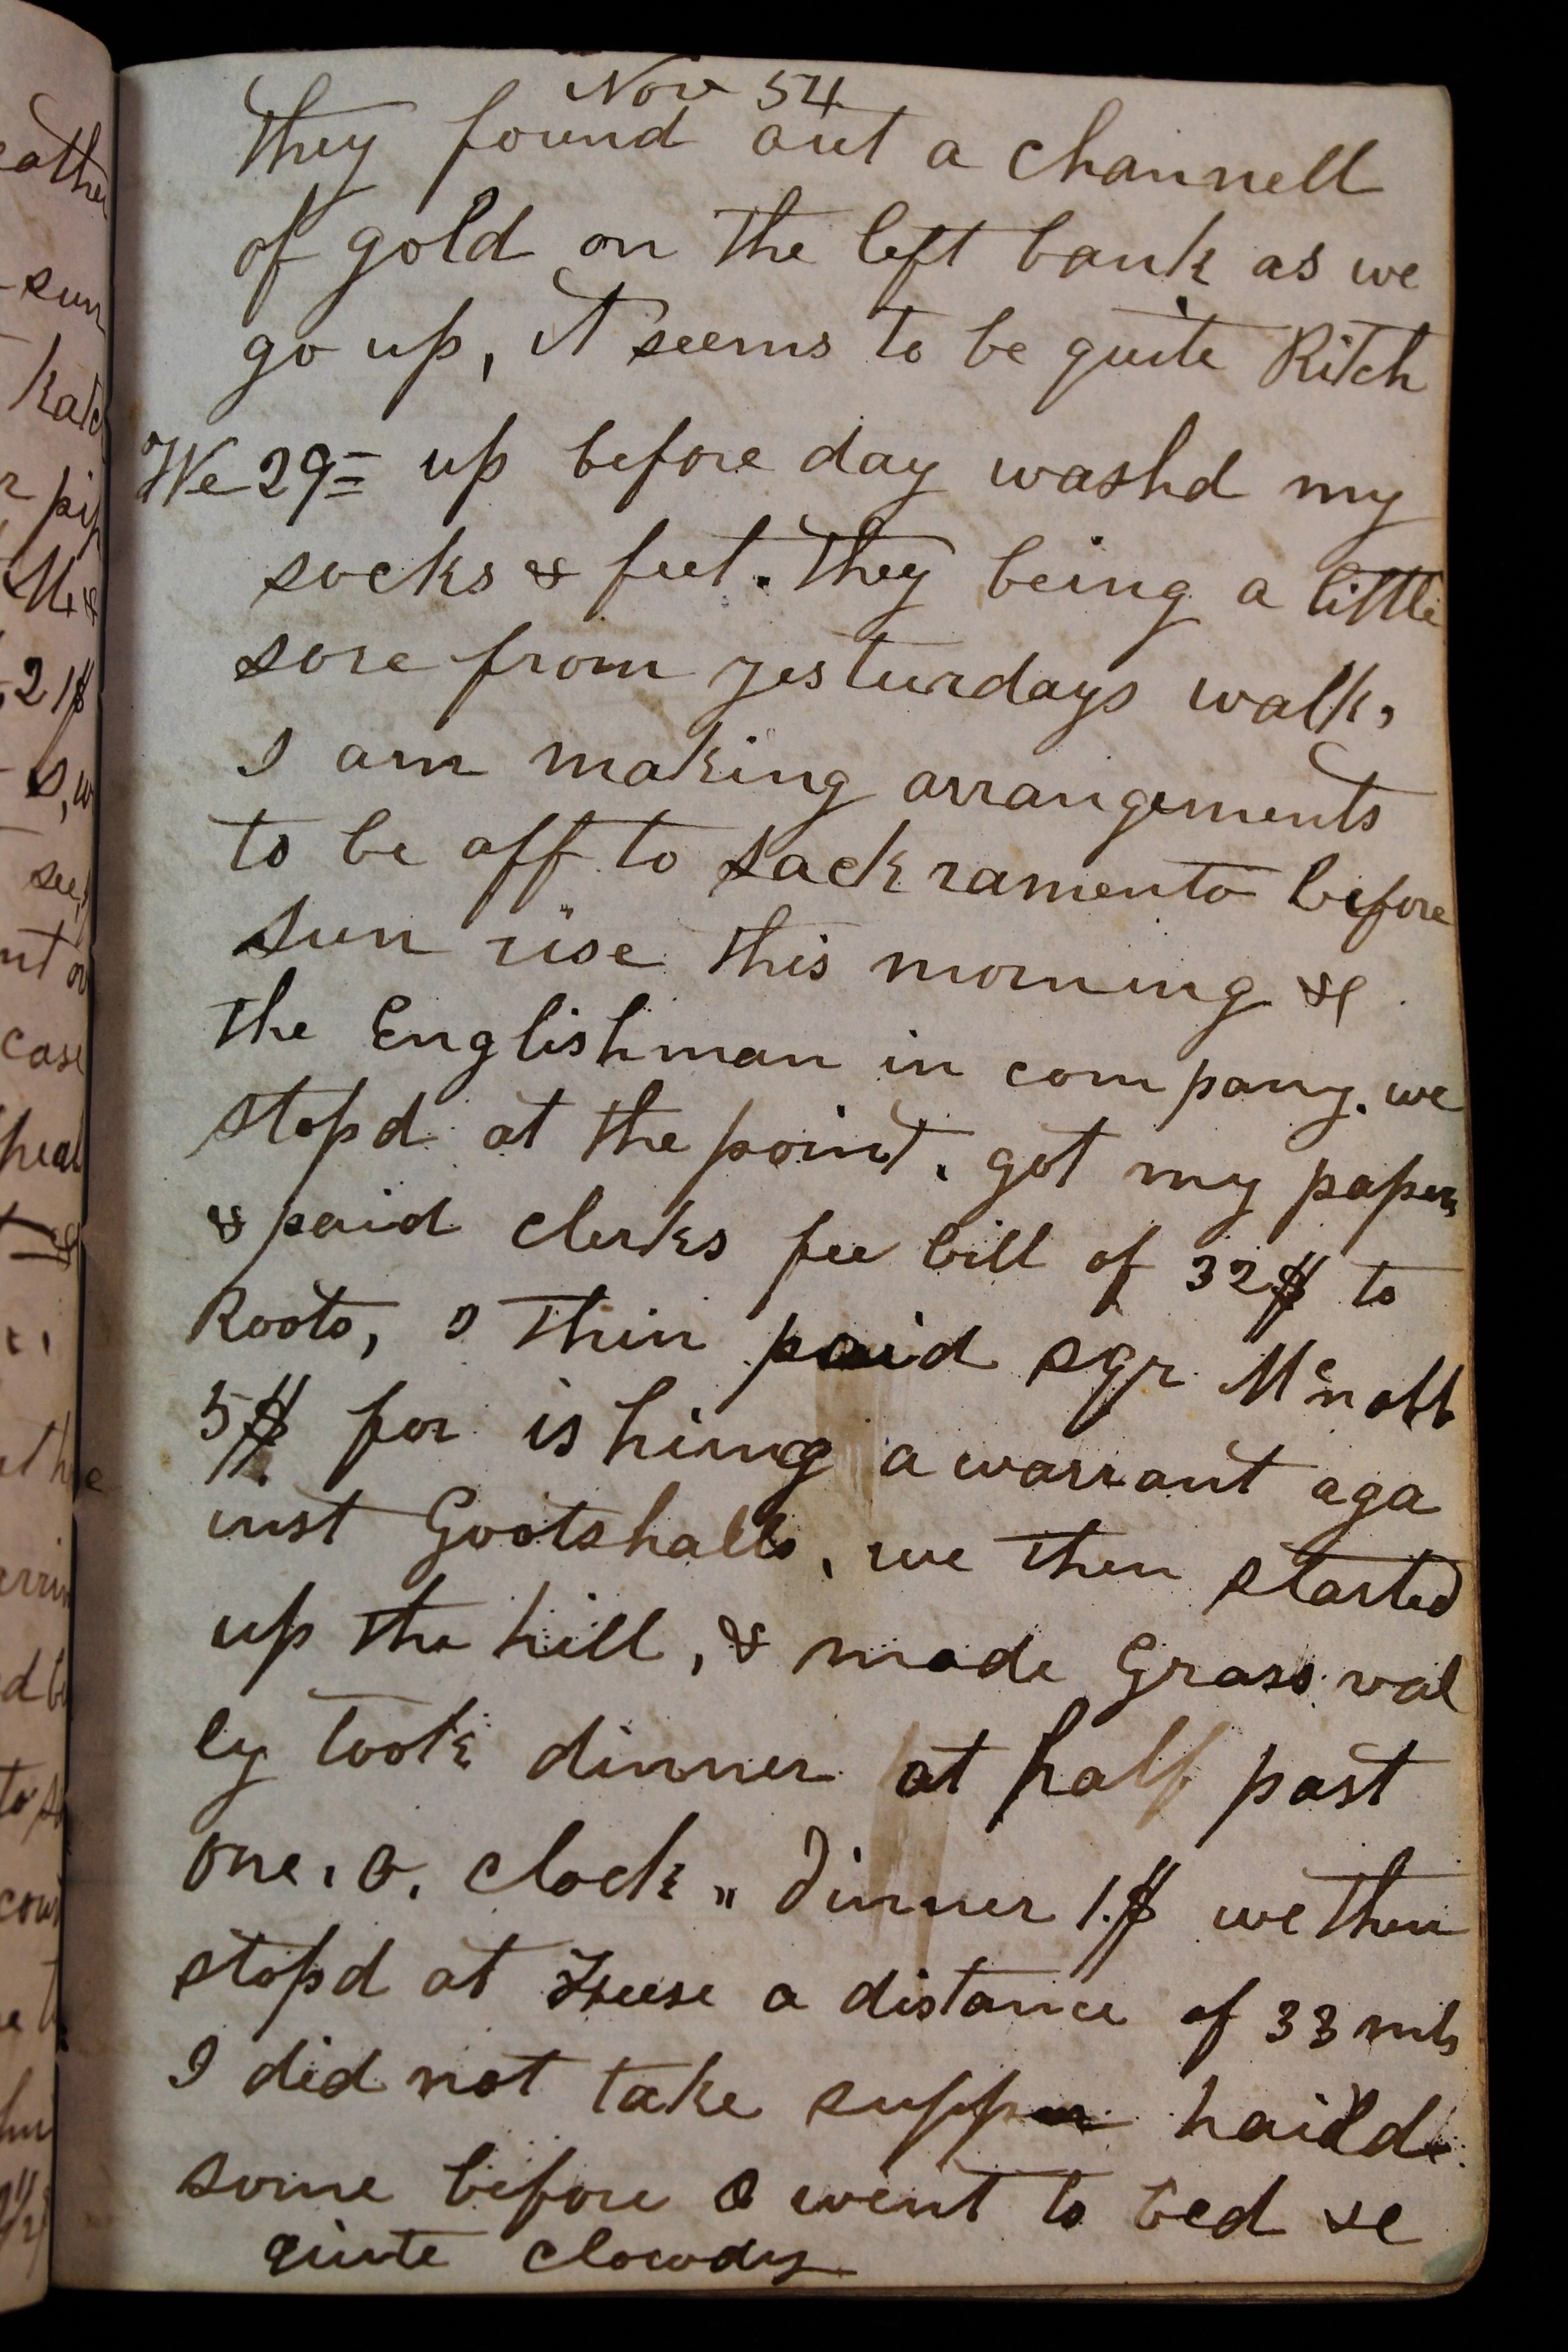 Nov 54
they found out a channell
of gold on the left bank as we
go up, it seems to be quite Ritch
We 29= up before day washd my
socks & feet. they being a little
sore from yesturdays walk,
I am making arrangements
to be off to sackramento before
sun rise this morning &c
the Englishman in company. we
stopd at the point. got my papers
& paid clerks fee bill of 32$ to
Roots, I then paid sqr Mcnabb
5$ for ishing a warrant aga
inst Gootshalls, we then started
up the hill, & made Grass val
ly took dinner at half past
one. O. clock " dinner 1.$ we then
stopd at a distance of 33 mls
I did not take supper haild
some before I went to bed &c
quite clowdy